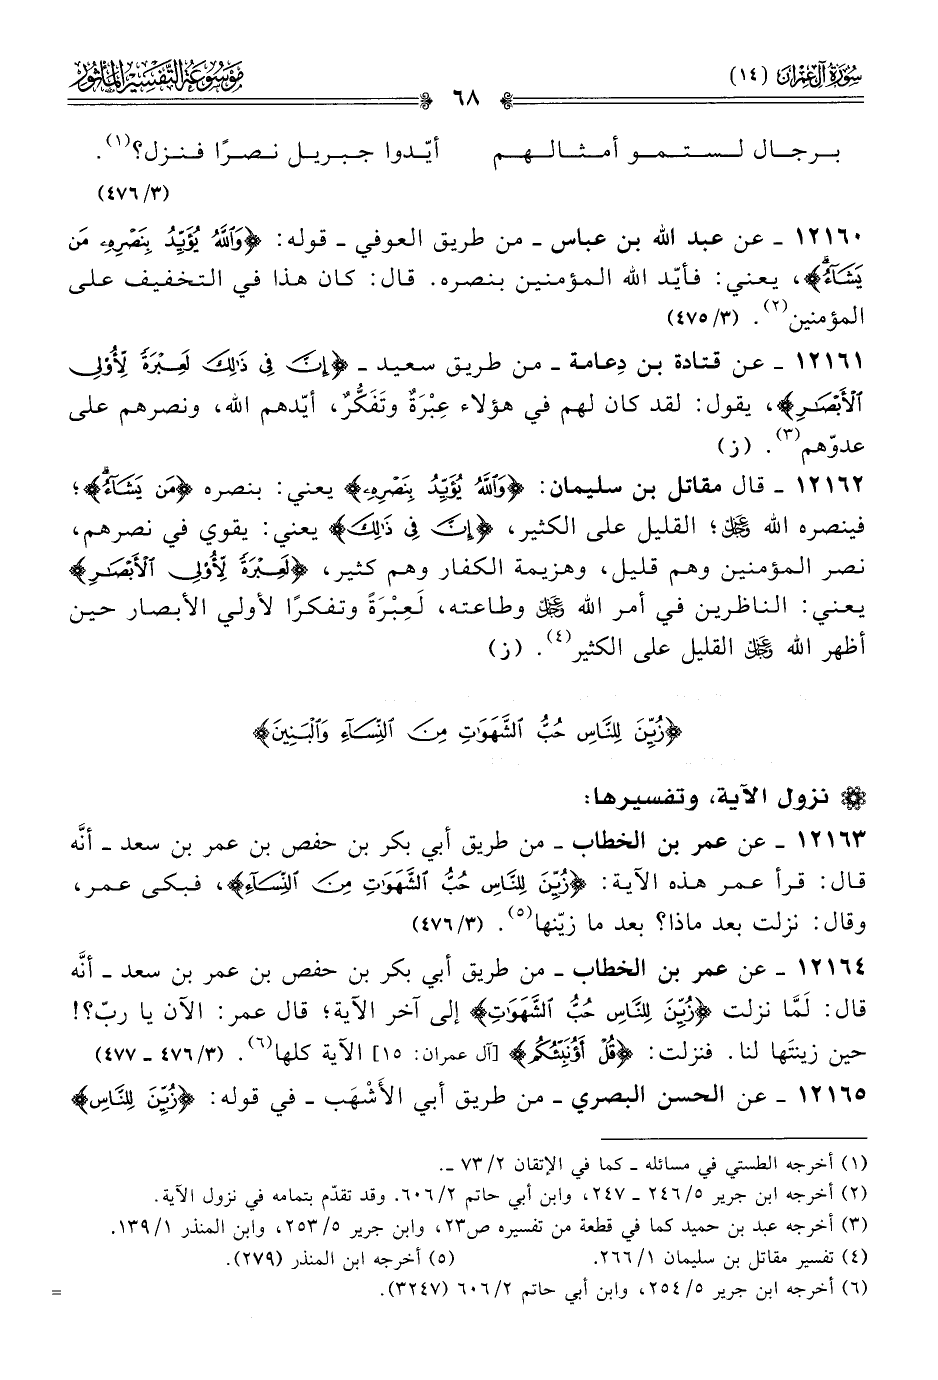 سورة آل عمران (١٤)
موسوعة التفسير المأثور
٦٨
برجال لستمو أمثالهم أيّدوا جبريل نصرًا فنزل؟(١).
(٤٧٦/٣)
١٢١٦٠ ـ عن عبد الله بن عباس ـ من طريق العوفي ـ قوله: ﴿وَٱللَّهُ يُؤَيِّدُ بِنَصْرِهِۦ مَن
يَشَآءُۗ﴾، يعني: فأيّد الله المؤمنين بنصره. قال: كان هذا في التخفيف على
المؤمنين(٢). (٤٧٥/٣)
١٢١٦١ ـ عن قتادة بن دِعامة ـ من طريق سعيد ـ ﴿إِنَّ فِى ذَٰلِكَ لَعِبْرَةً لِّأُو۟لِى
ٱلْأَبْصَٰرِ﴾، يقول: لقد كان لهم في هؤلاء عِبْرَةٌ وتَفَكُّرٌ، أيّدهم الله، ونصرهم على
عدوّهم(٣). (ز)
١٢١٦٢ ـ قال مقاتل بن سليمان: ﴿وَٱللَّهُ يُؤَيِّدُ بِنَصْرِهِۦ﴾ يعني: بنصره ﴿مَن يَشَآءُۗ﴾؛
فينصره الله ﷿؛ القليل على الكثير، ﴿إِنَّ فِى ذَٰلِكَ﴾ يعني: يقوي في نصرهم،
نصر المؤمنين وهم قليل، وهزيمة الكفار وهم كثير، ﴿لَعِبْرَةً لِّأُو۟لِى ٱلْأَبْصَٰرِ﴾
يعني: الناظرين في أمر الله ﷿ وطاعته، لَعِبْرَةً وتفكرًا لأولي الأبصار حين
أظهر الله ﷿ القليل على الكثير(٤). (ز)
﴿زُيِّنَ لِلنَّاسِ حُبُّ ٱلشَّهَوَٰتِ مِنَ ٱلنِّسَآءِ وَٱلْبَنِينَ﴾
نزول الآية، وتفسيرها:
١٢١٦٣ ـ عن عمر بن الخطاب ـ من طريق أبي بكر بن حفص بن عمر بن سعد ـ أنَّه
قال: قرأ عمر هذه الآية: ﴿زُيِّنَ لِلنَّاسِ حُبُّ ٱلشَّهَوَٰتِ مِنَ ٱلنِّسَآءِ﴾، فبكى عمر،
وقال: نزلت بعد ماذا؟ بعد ما زيّنها(٥). (٤٧٦/٣)
١٢١٦٤ ـ عن عمر بن الخطاب ـ من طريق أبي بكر بن حفص بن عمر بن سعد ـ أنَّه
قال: لَمَّا نزلت ﴿زُيِّنَ لِلنَّاسِ حُبُّ ٱلشَّهَوَٰتِ﴾ إلى آخر الآية؛ قال عمر: الآن يا ربّ؟!
حين زينتَها لنا. فنزلت: ﴿قُلْ أَؤُنَبِّئُكُم﴾ [آل عمران: ١٥] الآية كلها(٦). (٤٧٦/٣ ـ ٤٧٧)
١٢١٦٥ ـ عن الحسن البصري ـ من طريق أبي الأَشْهَب ـ في قوله: ﴿زُيِّنَ لِلنَّاسِ﴾
(١) أخرجه الطستي في مسائله ـ كما في الإتقان ٧٣/٢ ـ.
(٢) أخرجه ابن جرير ٢٤٦/٥ ـ ٢٤٧، وابن أبي حاتم ٦٠٦/٢. وقد تقدّم بتمامه في نزول الآية.
(٣) أخرجه عبد بن حميد كما في قطعة من تفسيره ص٢٣، وابن جرير ٢٥٣/٥، وابن المنذر ١٣٩/١.
(٤) تفسير مقاتل بن سليمان ٢٦٦/١. (٥) أخرجه ابن المنذر (٢٧٩).
(٦) أخرجه ابن جرير ٢٥٤/٥، وابن أبي حاتم ٦٠٦/٢ (٣٢٤٧).
=